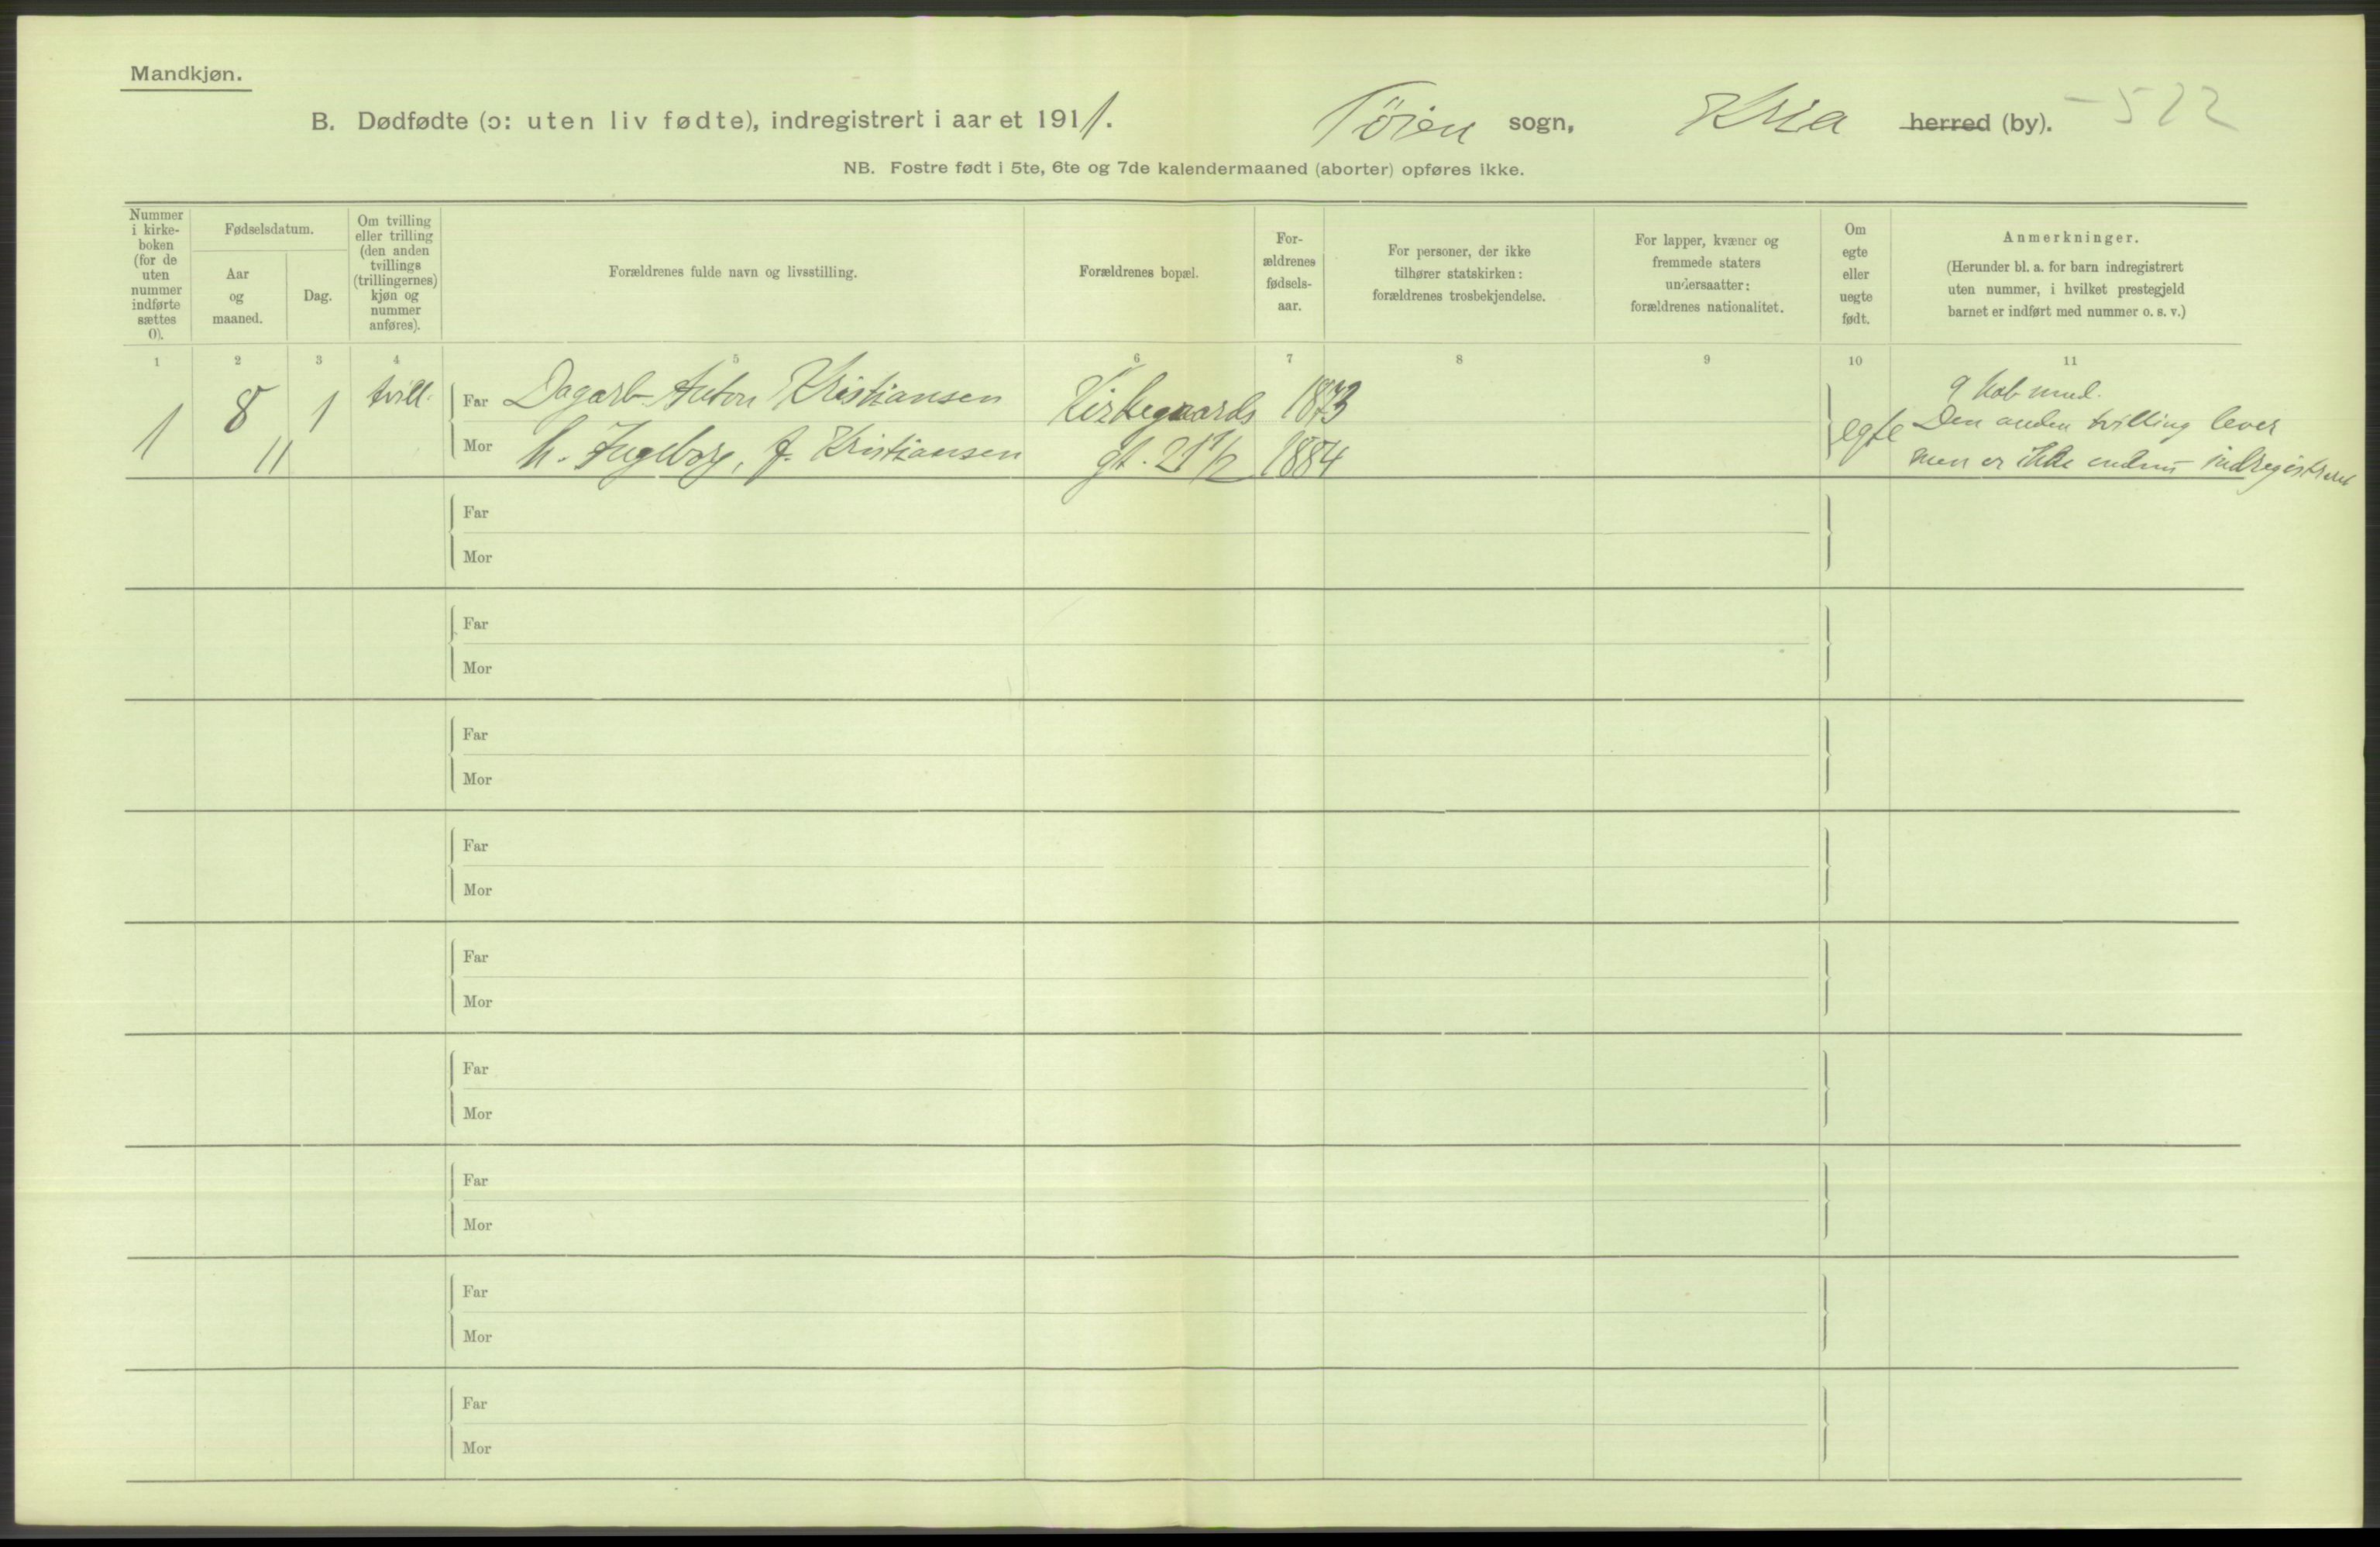 Mandkjøn.
B. Dødfødte (ɔ: uten liv fødte), indregistrert i aaret 1911. Tøien sogn, Kria herred (by). -522
NB. Fostre født i 5te, 6te og 7de kalendermaaned (aborter) opføres ikke.
Nummer
i kirke-
boken
(for de
uten
nummer
indførte
sættes
0).
Fødselsdatum.
Aar
og
maaned.
Dag.
Om tvilling
eller trilling
(den anden
tvillings
(trillingernes)
kjøn og
nummer
anføres).
Forældrenes fulde navn og livsstilling.
Forældrenes bopæl.
For-
ældrenes
fødsels-
aar.
For personer, der ikke
tilhører statskirken:
forældrenes trosbekjendelse.
For lapper, kvæner og
fremmede staters
undersaatter:
forældrenes nationalitet.
Om
egte
eller
uegte
født.
Anmerkninger.
(Herunder bl. a. for barn indregistrert
uten nummer, i hvilket prestegjeld
barnet er indført med nummer o. s. v.)
1 2 3 4 5 6 7 8 9 10 11
1 8 1 tvill. Far Anton Kristiansen Kirkegaards 1873
11 Mor h. Ingeborg, f. Kristiansen gt. 21 1/2 1884
egte
9
Den anden tvilling lever
men er ikke endnu indregistrert
Far
Mor
Far
Mor
Far
Mor
Far
Mor
Far
Mor
Far
Mor
Far
Mor
Far
Mor
Far
Mor